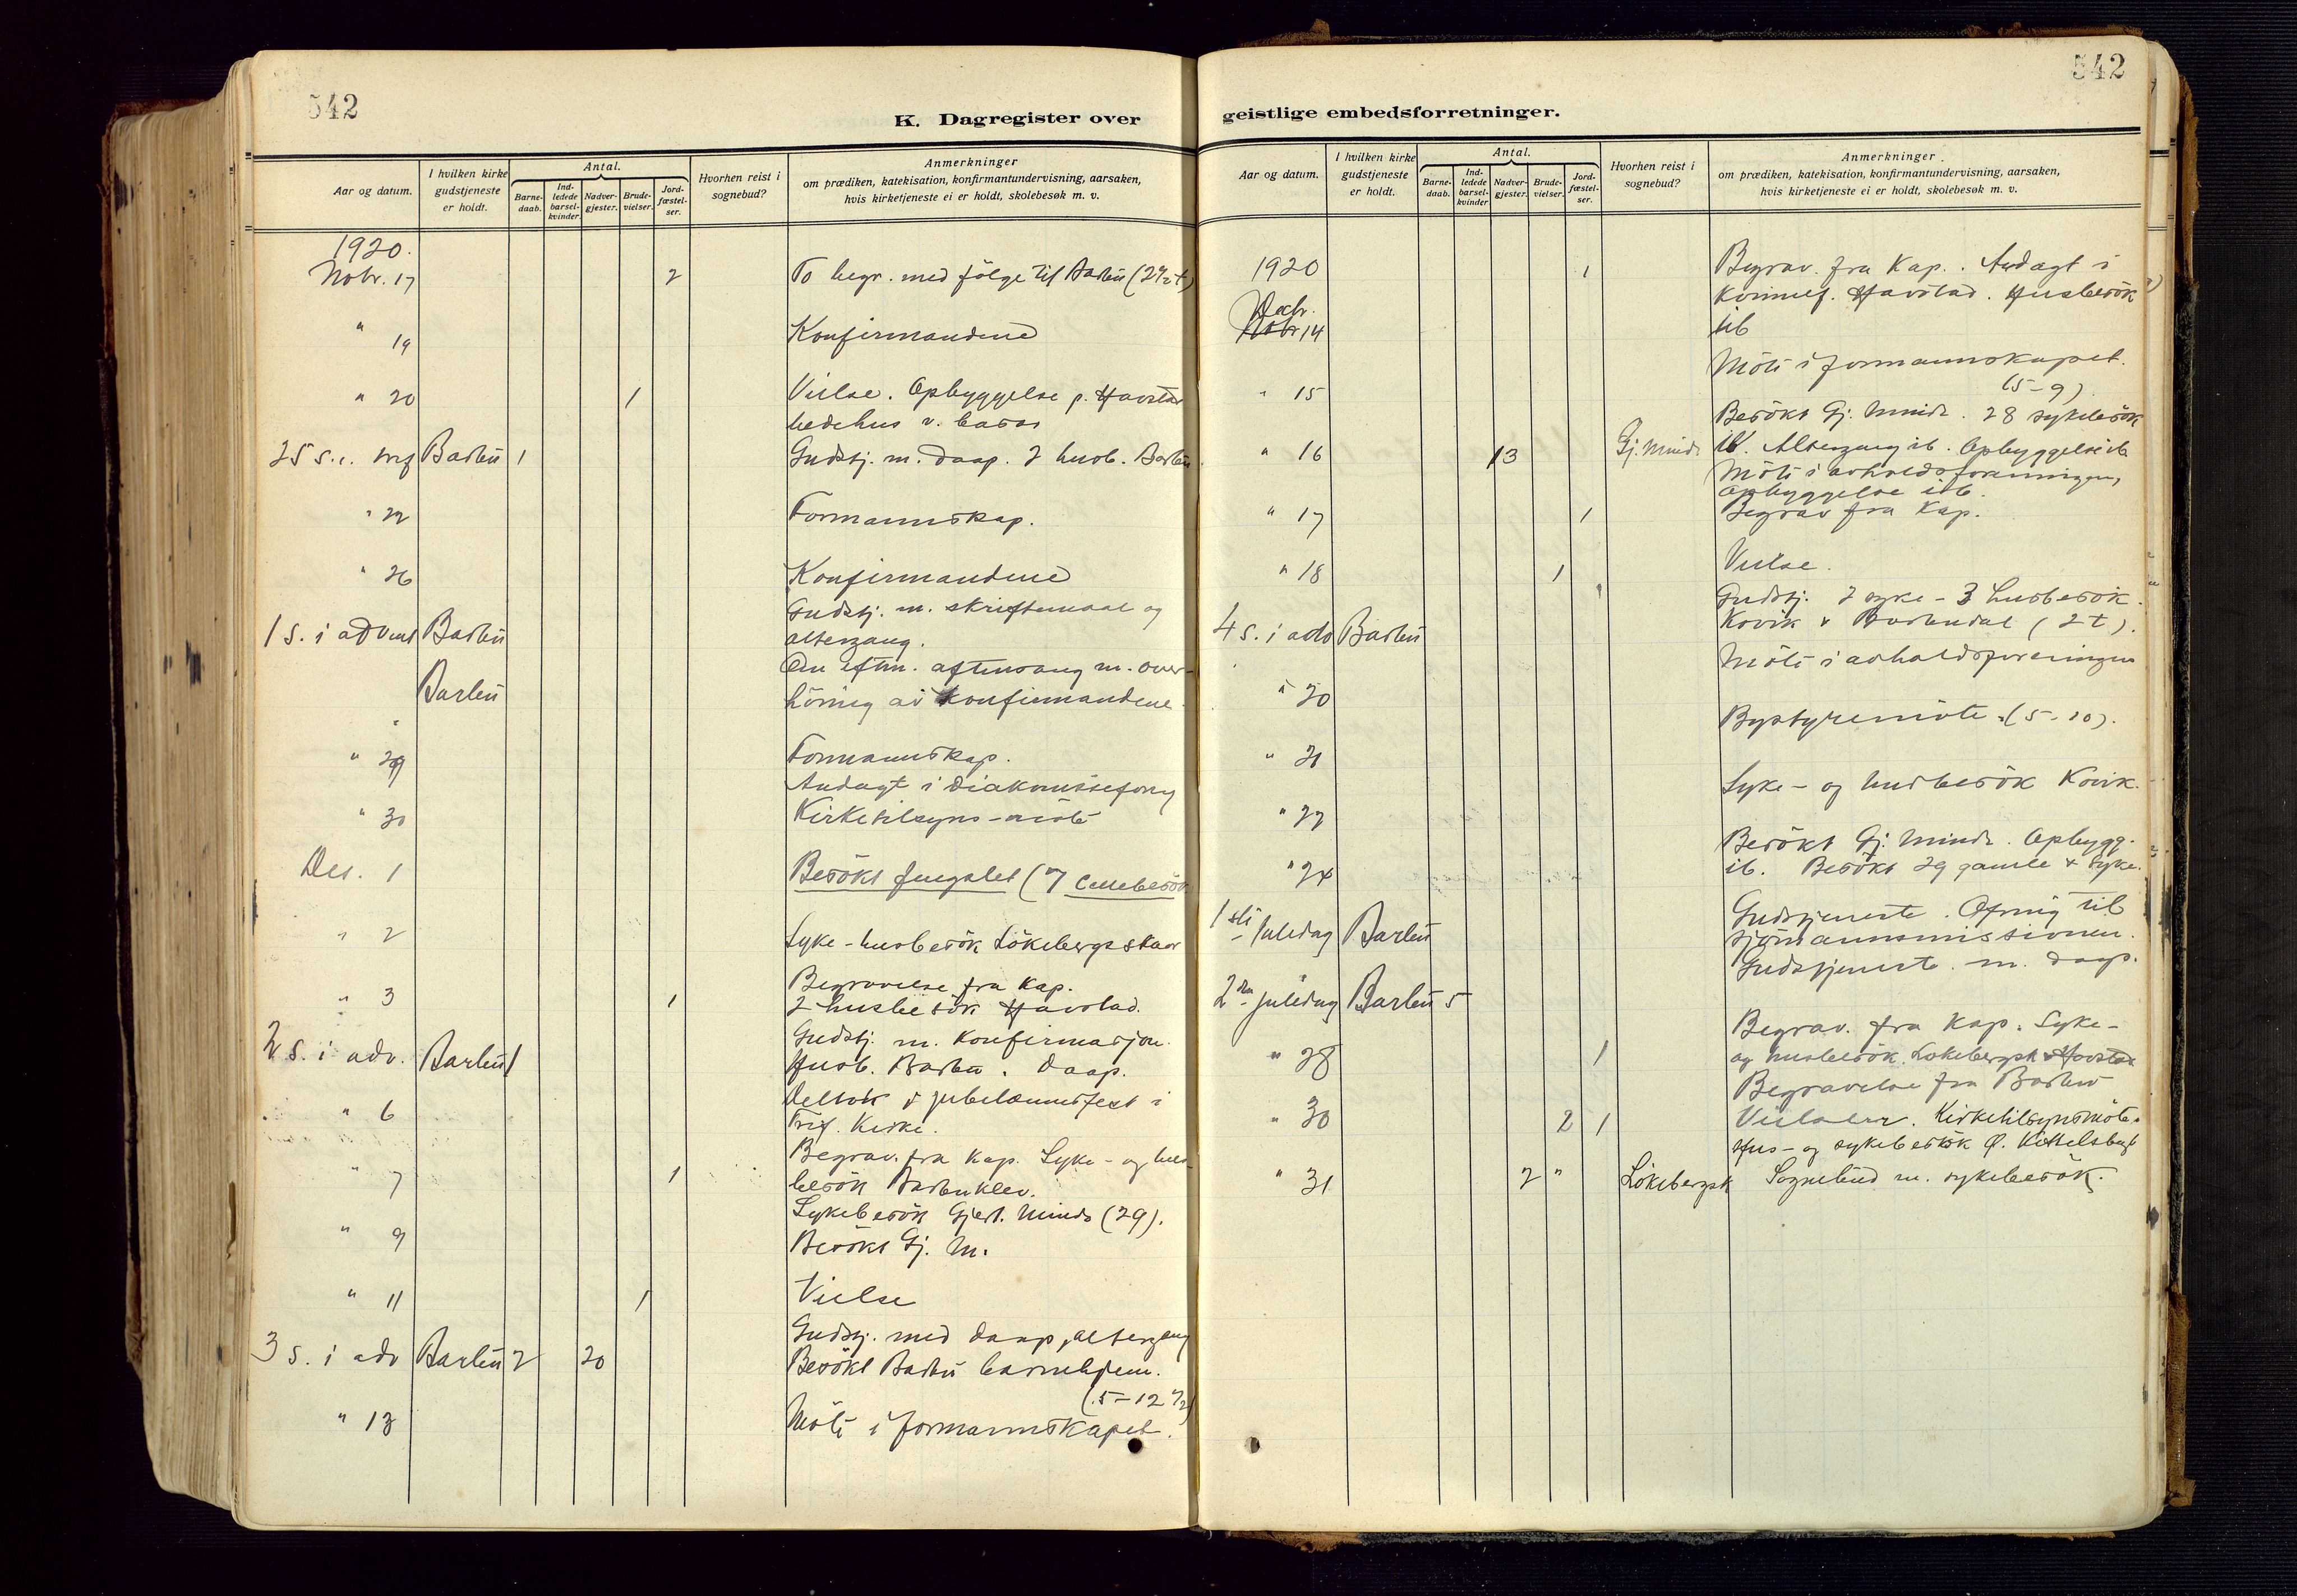 542
K. Dagregister over
Aar og datum.
I hvilken kirke gudstjeneste er holdt.
Antal.
Barne-daab.
Ind-ledede barsel-kvinder.
Nadver-gjester.
Brude-vielser.
Jord-fæstel-ser.
Hvorhen reist i sognebud?
Anmerkninger
om prædiken, katekisation, konfirmantundervisning, aarsaken,
hvis kirketjeneste ei er holdt, skolebesøk m. v.
1920.
Nobr. 17 2 To begr. med følge til Barbu (2½ t)
" 19 Konfirmandene
" 20 1 Vielse. Opbyggelse p. Havstad
bedehus v. basar
25 s. e. tref Barbu 1 Gudstj. m. daap. 2 husb. Barbu
" 22 Formannskap.
" 26 Konfirmandene
Gudstj. m. skriftemaal og
1 s. i advent Barbu altergang.
Om eftm. aftensang m. over-
Barbu høring av konfirmandene.
" 29 Formannskap.
Andagt i Diakonisseforg
" 30 Kirketilsyns-møte
Des. 1 Besøkt fengslet (7 cellebesøk
" 2 Syke-husbesøk Løkebergsskar
Begravelse fra Kap.
" 3 1 2 husbesøk Havstad.
Gudstj. m. Konfirmasjon.
2 s. i adv. Barbu 1 Husb. Barbu. Daap.
Deltok i jubelæumsfest i
" 6 Tref. Kirke.
Begrav. fra Kap. Syke- og hus-
" 7 1 besøk Barbuklev.
Sykebesøk Gjert. Minde (29).
" 9 Besøkt Gj. M.
" 11 1 Vielse
Gudstj. med daap, altergang
3 s. i adv Barbu 2 20 Besøkt Barbu barnehjem.
(5-12½)
" 13 Møte i formannskapet.
542
geistlige embedsforretninger.
Aar og datum.
I hvilken kirke gudstjeneste er holdt.
Antal.
Barne-daab.
Ind-ledede barsel-kvinder
Nadver-gjester.
Brude-vielser.
Jord-fæstel-ser.
Hvorhen reist i sognebud?
Anmerkninger
om prædiken, katekisation, konfirmantundervisning, aarsaken,
hvis kirketjeneste ei er holdt, skolebesøk m. v.
1920 1 Begrav. fra Kap. Andagt i
Kvinnef. Havstad. Husbesøk
Decbr.
Nobr 14 ib
Møte i formannskapet.
" 15 (5-9)
Besøkt Gj. Minde. 28 sykebesøk
" 16 13 Gj. Minde ib. Altergang ib. Opbyggelse ib
Møte i avholdsforeningen,
opbyggelse ib.
" 17 1 Begrav fra Kap.
" 18 1 Vielse.
Gudstj. 2 syke- 3 husbesøk.
4 s. i adv Barbu Kovik & Barbudal (2 t).
Møte i avholdsforeningen
" 20
Bystyremøte. (5-10).
" 21
Syke- og husbesøk Kovik.
" 22
Besøkt Gj. Minde. Opbygg.
" 24 ib. Besøkt 29 gamle & syke.
Gudstjeneste. Ofring til
1ste juledag Barbu sjømannsmissionen.
Gudstjeneste. m. daap.
2den juledag Barbu 5
Begrav. fra Kap. Syke-
" 28 1 og husbesøk. Løkebergsk & Havstad
Begravelse fra Barbu
" 30 2 1 Vielser. Kirketilsynsmøte.
Hus- og sykebesøk Ø. Kittelsbugt
" 31 2 " Løkebergsk Sognebud m. sykebesøk.